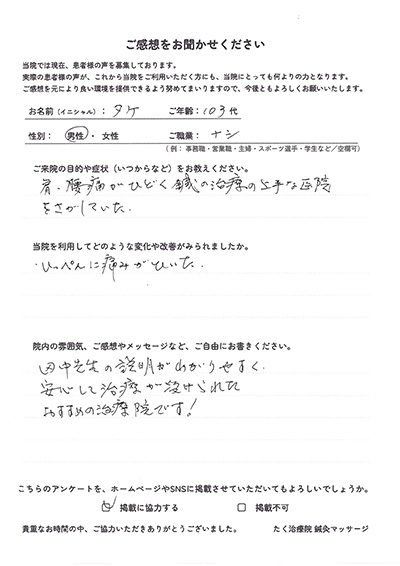 ご感想をお聞かせください
当院では現在、患者様の声を募集しております。
実際の患者様の声が、これから当院をご利用いただく方にも、当院にとっても何よりの力となります。
ご感想を元により良い環境を提供できるよう努めてまいりますので、今後ともよろしくお願いいたします。
お名前(イニシャル): タケ ご年齢: 103代
性別: 男性・女性 ご職業: ナシ
(例: 事務職・営業職・主婦・スポーツ選手・学生など/空欄可)
ご来院の目的や症状(いつからなど)をお教えください。
肩、腰痛がひどく鍼の治療の上手な医院
をさがしていた.
当院を利用してどのような変化や改善がみられましたか。
・いっぺんに痛みがひいた.
院内の雰囲気、ご感想やメッセージなど、ご自由にお書きください。
田中先生の説明がわかりやすく、
安心して治療が受けられた
おすすめの治療院です!
こちらのアンケートを、ホームページやSNSに掲載させていただいてもよろしいでしょうか。
掲載に協力する 掲載不可
貴重なお時間の中、ご協力いただきありがとうございました。 たく治療院 鍼灸マッサージ